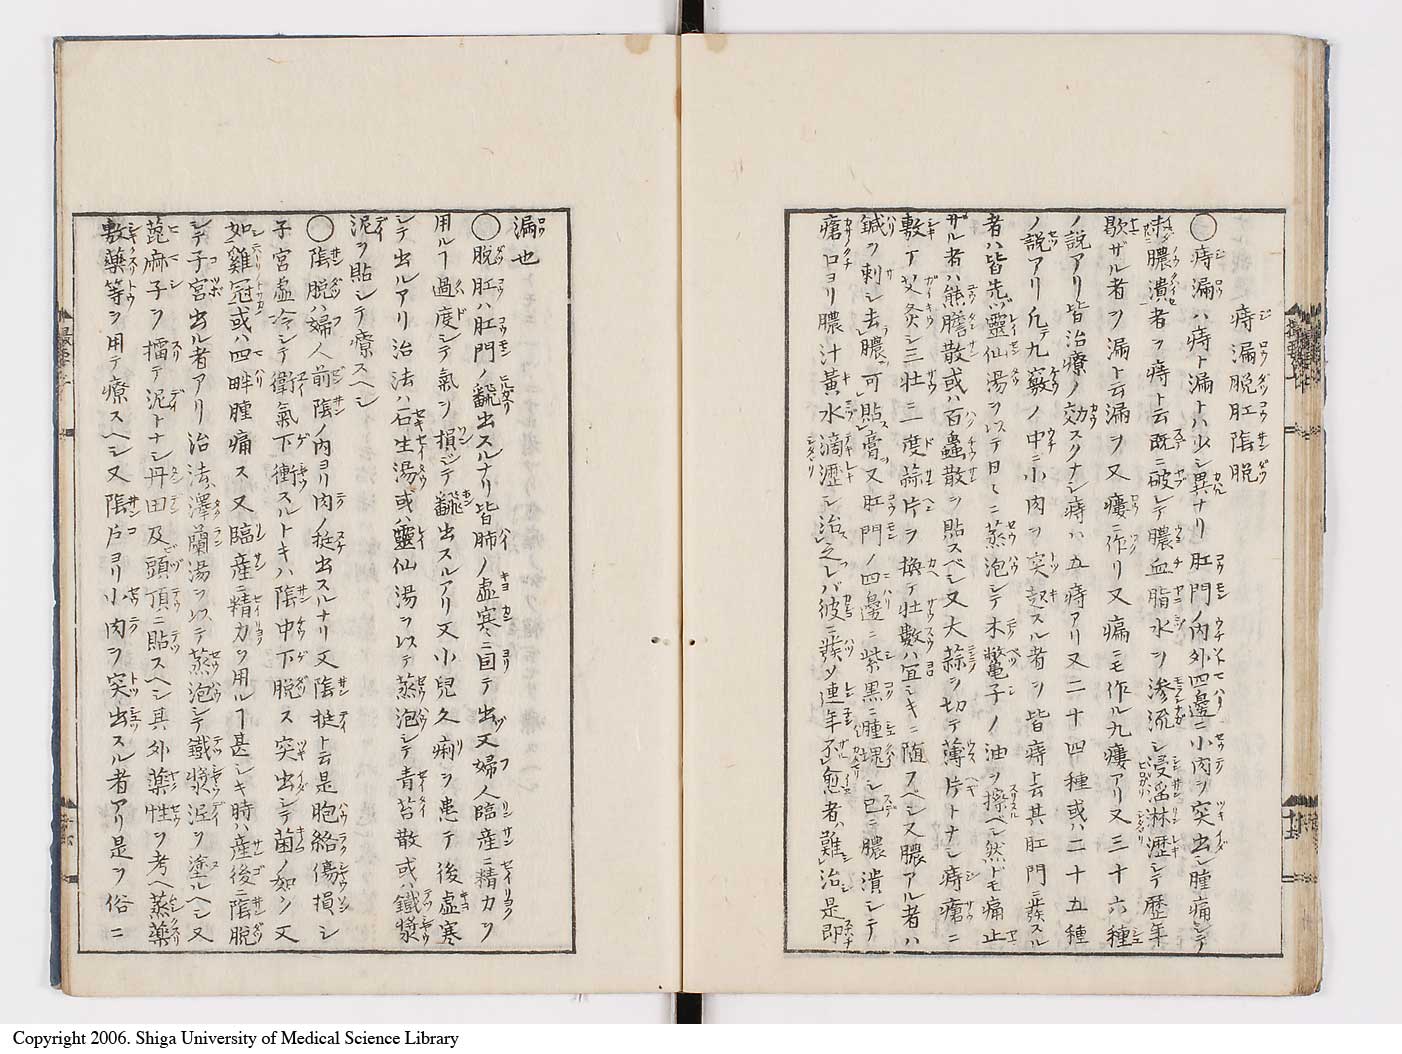 痔漏脱肛陰脱
◯痔漏ハ痔ト漏トハ少シ異ナリ肛門ノ内外四邊ニ小肉ヲ突出シ腫痛シテ
未膿潰者ヲ痔ト云既ニ破レテ膿血脂水ヲ滲流シ浸淫淋瀝シテ歴年
歇ザル者ヲ漏ト云漏ヲ又瘻ニ作リ又瘺ニモ作ル九瘻アリ又三十六種
ノ説アリ皆治療ノ効スクナシ痔ハ五痔アリ又二十四種或ハ二十五種
ノ説アリ凡テ九竅ノ中ニ小肉ヲ突起スル者ヲ皆痔ト云其肛門ニ發スル
者ハ皆先ヅ靈仙湯ヲ以テ日々ニ蒸泡シテ木鼈子ノ油ヲ擦ベシ然ドモ痛止
ザル者ハ熊膽散或ハ百蟲散ヲ貼スベシ又大蒜ヲ切テ薄片トナシ痔瘡ニ
敷丁艾灸シ三壮二度蒜片ヲ換テ壮數ハ宜シキニ随スベシ又膿アル者ハ
鍼ヲ刺シ去膿可貼膏又肛門ノ四邊ニ紫黒ニ腫塊シ已ニ膿潰シテ
瘡口ヨリ膿汁黄水滴瀝シ治之レバ彼ニ發ソ連年不愈者ハ難治是即
漏也
◯脱肛ハ肛門ノ翻出スルナリ皆肺ノ虚寒ニ因テ出ヅ又婦人臨産ニ精力ヲ
用ルヿ過度シテ氣ヲ損ジテ翻出スルアリ又小兒久痢ヲ患テ後虚寒
シテ出ルアリ治法ハ石生湯或ハ靈仙湯ヲ以テ蒸泡シテ青苔散或ハ鐵漿
泥ヲ貼シテ療スヘシ
◯陰脱ハ婦人前陰ノ内ヨリ肉ノ挺出スルナリ又陰挺ト云是胞絡傷損シ
子宮虚冷シテ衛氣下衝スルトキハ陰中下脱ス突出シテ菌ノ如シ又
如雞冠或ハ四畔腫痛ス又臨産ニ精力ヲ用ルヿ甚シキ時ハ産後ニ陰脱
シテ子宮出ル者アリ治法ハ澤蘭湯ヲ以テ蒸泡シテ鐵漿泥ヲ塗ルヘシ又
蓖麻子ヲ擂テ泥トナシ丹田及頭頂ニ貼スヘシ其外藥性ヲ考ヘ蒸藥
敷藥等ヲ用テ療スヘシ又陰戸ヨリ小肉ヲ突出スル者アリ是ヲ俗ニ
Copyright 2006. Shiga University of Medical Science Library